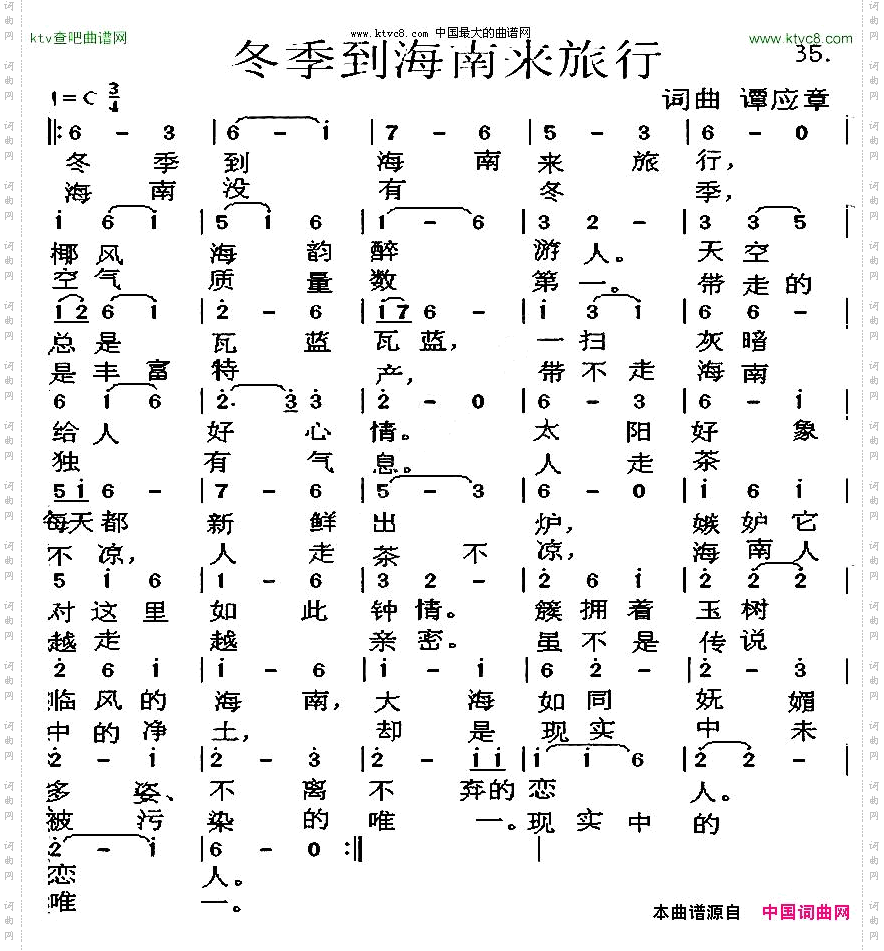 www.ktvc8.com 中国最大的曲谱网
ktv查吧曲谱网
www.ktyc8.com
冬季到海南来旅行
35.
1=C 3/4
词曲 谭应章
‖: 6 - 3 | 6 - i | 7 - 6 | 5 - 3 | 6 - 0 |
冬 季 到 海 南 来 旅 行,
海 南 没 有 冬 季,
i 6 i | 5 1 6 | 1 - 6 | 3 2 - | 3 3 5 |
椰 风 海 韵 醉 游 人。 天 空
空 气 质 量 数 第 一。 带 走 的
i2 6 i | 2 - 6 | i7 6 - | i 3 i | 6 6 - |
总 是 瓦 蓝 瓦 蓝, 一 扫 灰 暗
是 丰 富 特 产, 带 不 走 海 南
6 i 6 | 2. 3 3 | 2 - 0 | 6 - 3 | 6 - i |
给 人 好 心 情。 太 阳 好 象
独 有 气 息。 人 走 茶
5i 6 - | 7 - 6 | 5 - 3 | 6 - 0 | i 6 i |
每 天 都 新 鲜 出 炉, 嫉 妒 它
不 凉, 人 走 茶 不 凉, 海 南 人
5 i 6 | 1 - 6 | 3 2 - | 2 6 i | 2 2 2 |
对 这 里 如 此 钟 情。 簇 拥 着 玉 树
越 走 越 亲 密。 虽 不 是 传 说
2 6 i | i - 6 | i - i | 6 2 - | 2 - 3 |
临 风 的 海 南, 大 海 如 同 妩 媚
中 的 净 土, 却 是 现 实 中 未
2 - i | 2 - 3 | 2 - i i | i i 6 | 2 2 - |
多 姿、 不 离 不 弃 的 恋 人。
被 污 染 的 唯 一。 现 实 中 的
2 - i | 6 - 0 :‖ |
恋 人。
唯 一。
本曲谱源自 中国词曲网